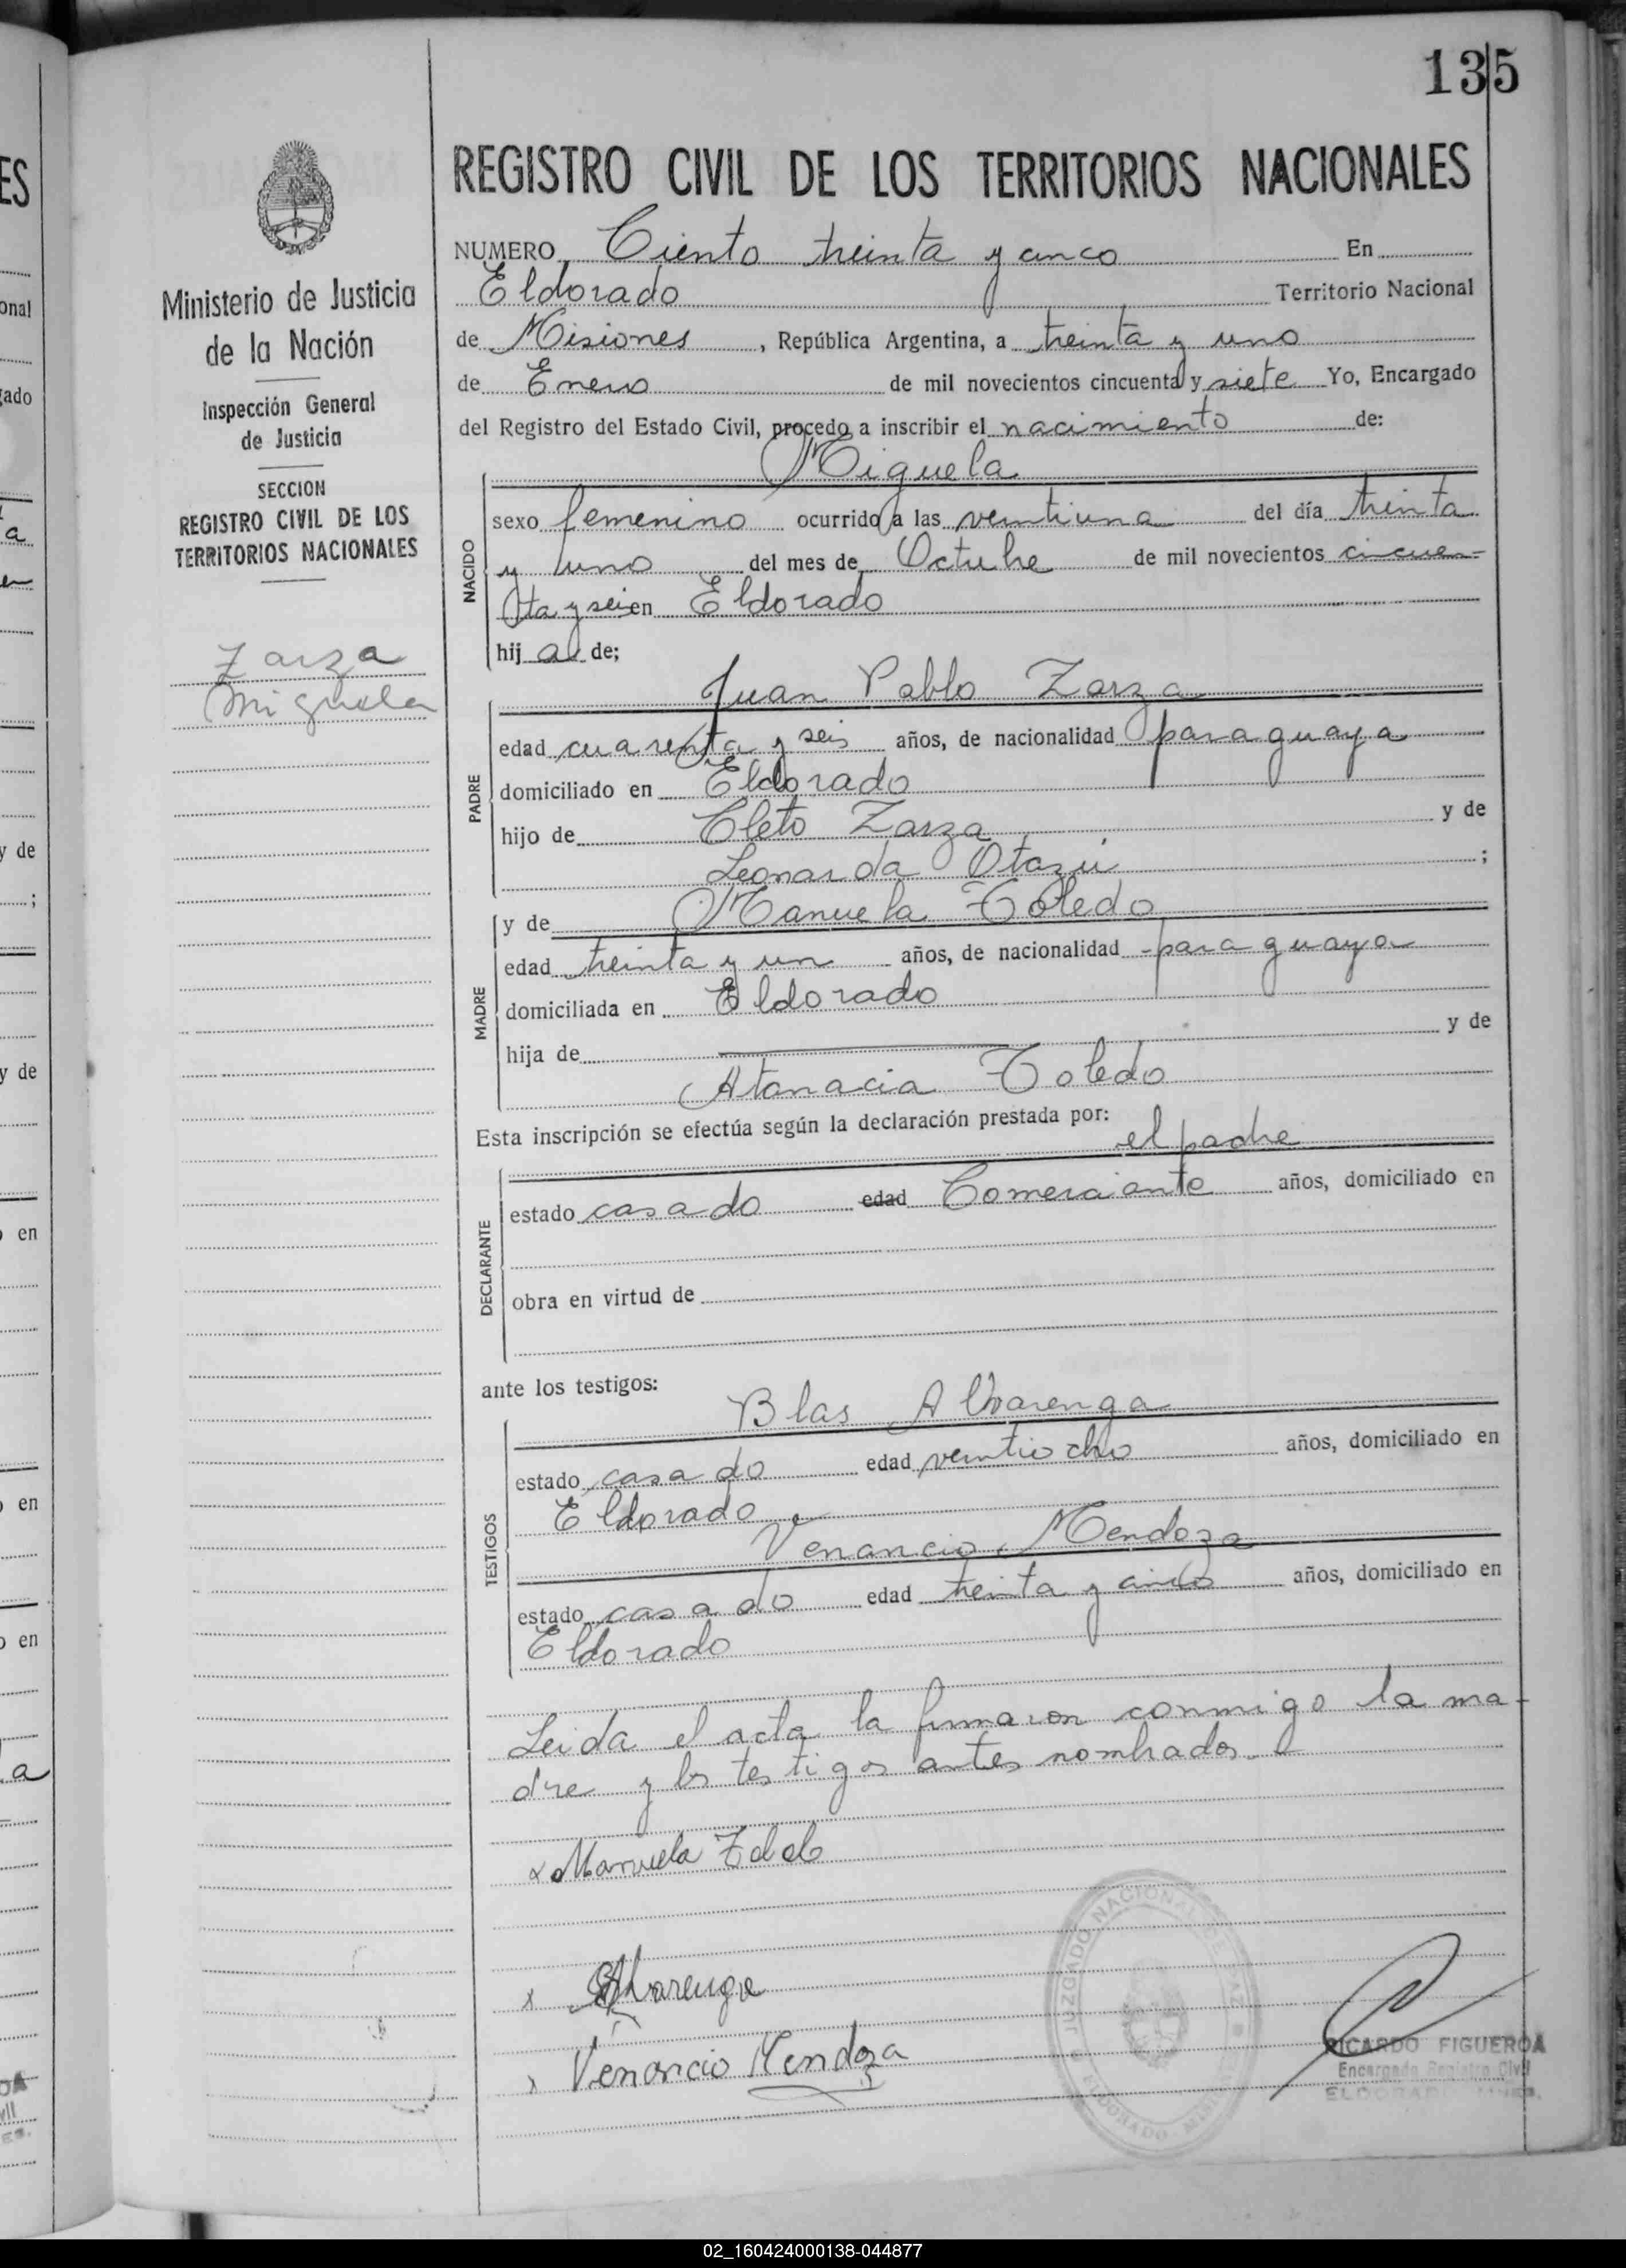 135
REGISTRO CIVIL DE LOS TERRITORIOS NACIONALES
Ministerio de Justicia
de la Nación
Inspección General
de Justicia
SECCION
REGISTRO CIVIL DE LOS
TERRITORIOS NACIONALES
Zarza
Miguela
NUMERO Ciento treinta y cinco En
Eldorado Territorio Nacional
de Misiones, República Argentina, a treinta y uno
de Enero de mil novecientos cincuenta y siete Yo, Encargado
del Registro del Estado Civil, procedo a inscribir el nacimiento de:
Miguela
NACIDO
sexo femenino ocurrido a las veintiuna del día treinta
y uno del mes de Octubre de mil novecientos cincuen-
ta y seis en Eldorado
hij a de;
Juan Pablo Zarza
PADRE
edad cuarenta y seis años, de nacionalidad paraguaya
domiciliado en Eldorado
hijo de Cleto Zarza y de
Leonarda Otazú ;
MADRE
y de Manuela Toledo
edad treinta y un años, de nacionalidad paraguaya
domiciliada en Eldorado
hija de y de
Atanacia Toledo
Esta inscripción se efectúa según la declaración prestada por:
el padre
DECLARANTE
estado casado edad Comerciante años, domiciliado en
obra en virtud de
ante los testigos:
Blas Alvarenga
TESTIGOS
estado casado edad veintiocho años, domiciliado en
Eldorado
Venancio Mendoza
estado casado edad treinta y cinco años, domiciliado en
Eldorado
Leida el acta la firmaron conmigo la ma-
dre y los testigos antes nombrados.
x Manuela Toledo
x Alvarenga
x Venancio Mendoza
JUZGADO NACIONAL DE PAZ
ELDORADO
RICARDO FIGUEROA
Encargado Registro Civil
ELDORADO
ES
onal
gado
a
en
y de
;
y de
o en
o en
o en
a
02_160424000138-044877